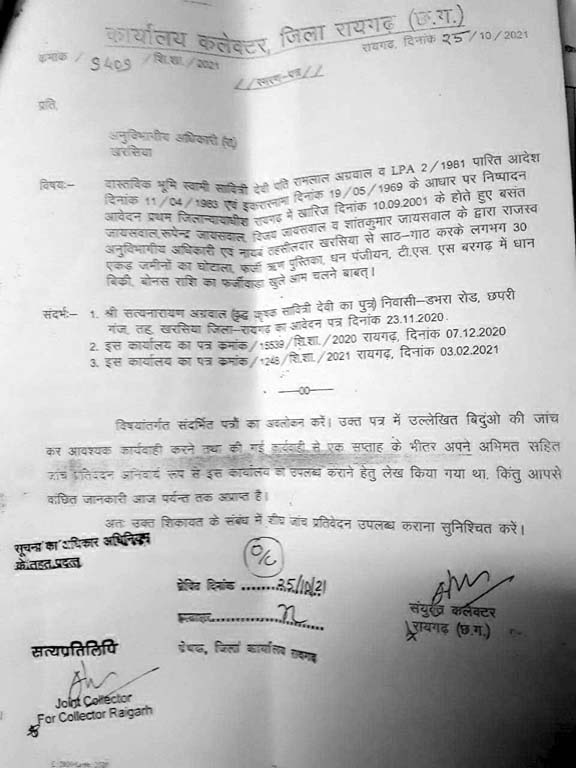 कार्यालय कलेक्टर, जिला रायगढ़ (छ.ग.)
क्रमांक / 9409 /शि.शा./2021 रायगढ़, दिनांक 25/10/2021
//स्मरण-पत्र//
प्रति,
अनुविभागीय अधिकारी (रा)
खरसिया
विषयः- वास्तविक भूमि स्वामी सावित्री देवी पति रामलाल अग्रवाल व LPA 2/1981 पारित आदेश
दिनांक 11/04/1983 एवं इकरारनामा दिनांक 19/05/1969 के आधार पर निष्पादन
आवेदन प्रथम जिलान्यायाधीश रायगढ़ में खारिज दिनांक 10.09.2001 के होते हुए बसंत
जायसवाल,रूपेन्द्र जायसवाल, विजय जायसवाल व शांतकुमार जायसवाल के द्वारा राजस्व
अनुविभागीय अधिकारी एवं नायब तहसीलदार खरसिया से साठ-गाठ करके लगभग 30
एकड़ जमीनों का घोटाला, फर्जी ऋण पुस्तिका, धन पंजीयन, टी.एस. एस बरगढ़ में धान
बिकी, बोनस राशि का फर्जीवाड़ा खुले आम चलने बाबत्।
संदर्भः- 1. श्री सत्यनारायण अग्रवाल (वृद्ध कृषक सावित्री देवी का पुत्र) निवासी-डभरा रोड, छपरी
गंज, तह. खरसिया जिला-रायगढ़ का आवेदन पत्र दिनांक 23.11.2020
2. इस कार्यालय का पत्र क्रमांक/15539/शि.शा./2020 रायगढ़, दिनांक 07.12.2020
3. इस कार्यालय का पत्र क्रमांक/1248/शि.शा./2021 रायगढ़, दिनांक 03.02.2021
—00—
विषयांतर्गत संदर्भित पत्रों का अवलोकन करें। उक्त पत्र में उल्लेखित बिदुंओ की जांच
कर आवश्यक कार्यवाही करने तथा की गई कार्यवाही से एक सप्ताह के भीतर अपने अभिमत सहित
जांच प्रतिवेदन अनिवार्य रूप से इस कार्यालय को उपलब्ध कराने हेतु लेख किया गया था, किंतु आपसे
वांछित जानकारी आज पर्यन्त तक अप्राप्त है।
अतः उक्त शिकायत के संबंध में शीघ्र जांच प्रतिवेदन उपलब्ध कराना सुनिश्चित करें।
सूचना का अधिकार अधिनियम
के तहत प्रदत्त
O/C
प्रेषित दिनांक ........25/10/21
हस्ताक्षर
प्रेषक, जिला कार्यालय रायगढ़
संयुक्त कलेक्टर
रायगढ़ (छ.ग.)
सत्यप्रतिलिपि
Joint Collector
For Collector Raigarh